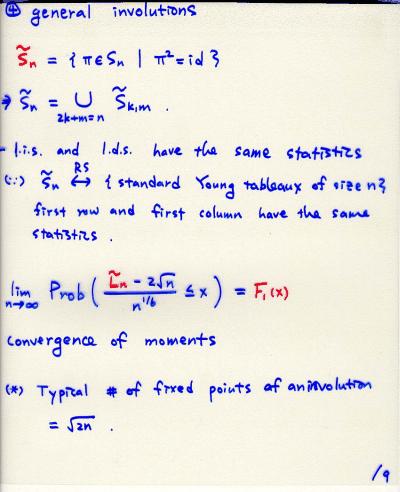 ④ general involutions
S̃n = { π ∈ Sn | π² = id }
⇒ S̃n = ∪ S̃k,m .
2k+m=n
- l.i.s. and l.d.s. have the same statistics
(∵) S̃n ↔ { standard Young tableaux of size n }
RS
first row and first column have the same
statistics .
lim n→∞ Prob ( (L̃n - 2√n) / n^{1/6} ≤ x ) = F₁(x)
convergence of moments
(*) Typical # of fixed points of an involution
= √2n .
19